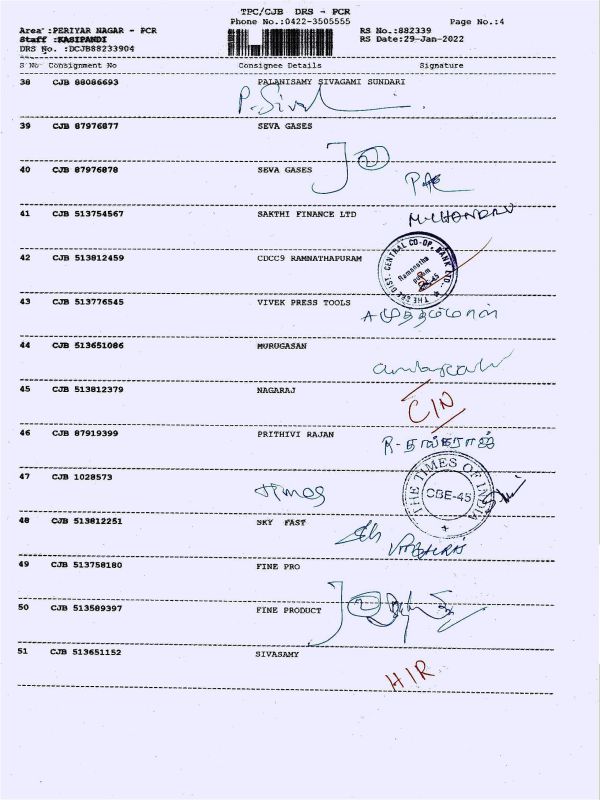 TPC/CJB DRS - PCR
Phone No.:0422-3505555 Page No.:4
Area :PERIYAR NAGAR - PCR RS No.:882339
Staff :KASIPANDI RS Date:29-Jan-2022
DRS No. :DCJB88233904
S No Consignment No Consignee Details Signature
38 CJB 88086693 PALANISAMY SIVAGAMI SUNDARI
39 CJB 87976877 SEVA GASES
40 CJB 87976878 SEVA GASES
41 CJB 513754567 SAKTHI FINANCE LTD
42 CJB 513812459 CDCC9 RAMNATHAPURAM
43 CJB 513776545 VIVEK PRESS TOOLS
44 CJB 513651086 MURUGASAN
45 CJB 513812379 NAGARAJ
C/N
46 CJB 87919399 PRITHIVI RAJAN
47 CJB 1028573
Times
THE TIMES OF INDIA
CBE-45
48 CJB 513812251 SKY FAST
49 CJB 513758180 FINE PRO
50 CJB 513589397 FINE PRODUCT
51 CJB 513651152 SIVASAMY
HIR